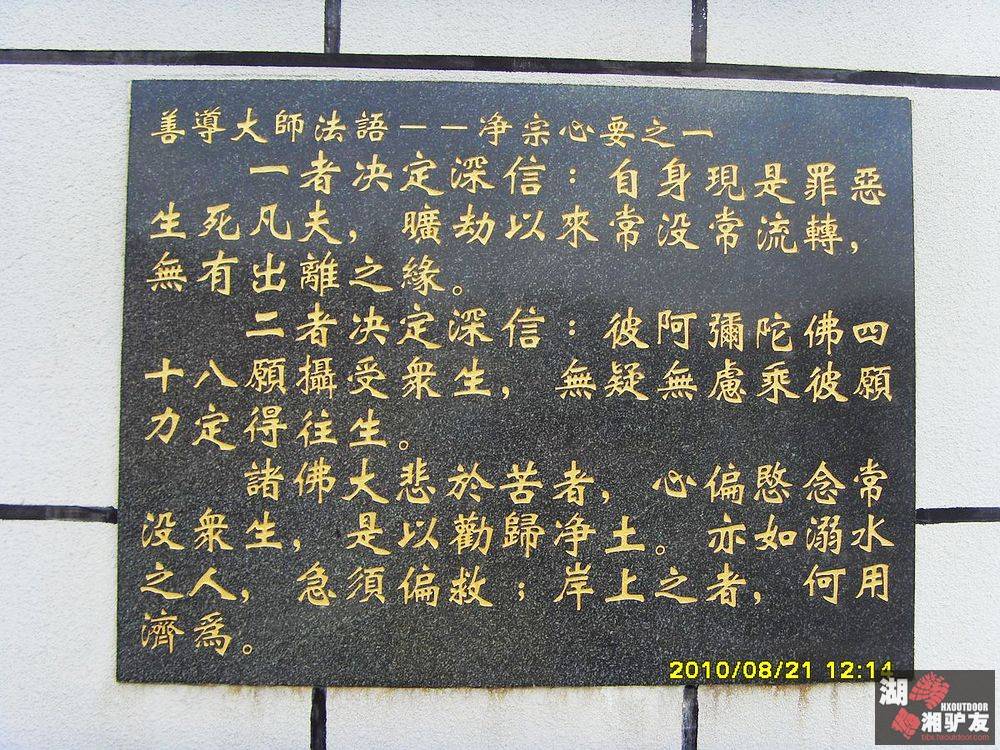 善導大師法語——净宗心要之一
一者决定深信：自身現是罪惡
生死凡夫，曠劫以來常没常流轉，
無有出離之緣。
二者决定深信：彼阿彌陀佛四
十八願攝受衆生，無疑無慮乘彼願
力定得往生。
諸佛大悲於苦者，心偏愍念常
没衆生，是以勸歸净土。亦如溺水
之人，急須偏救；岸上之者，何用
濟爲。
2010/08/21 12:14
湖
HXOUTDOOR
湘驴友
bbs.hxoutdoor.com